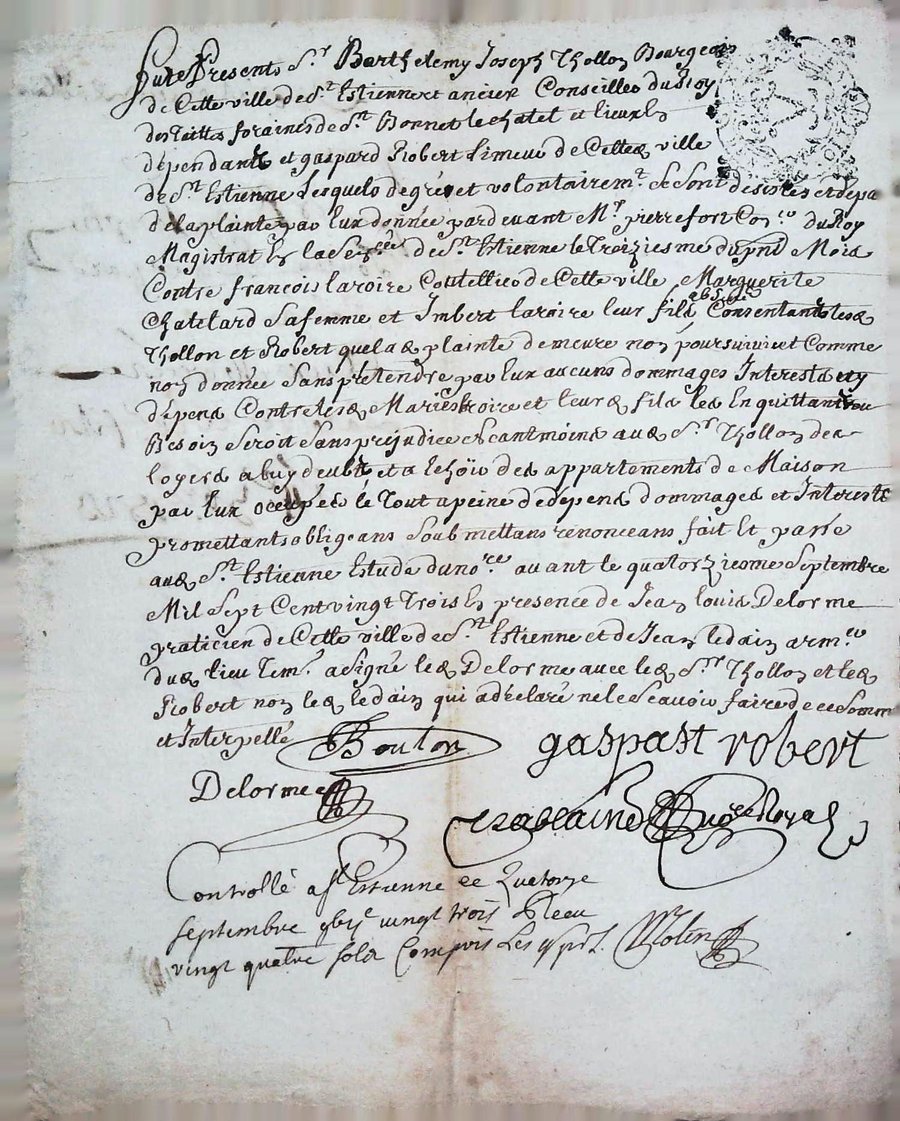 Fure Presents Sr Barthelemy Joseph Thollon Bourgeois
de Cette ville de St Estienne et ancien Conseiller du Roy
des tailles foraines de St Bonnet le chatel et lieux En
dépendants et gaspard Robert Limeur de Cette ville
de St Estienne Lesquels de gré et volontairemt Se sont desistés et dépa
de la plainte par Eux donnée pardevant Mr pierre fort Coner du Roy
Magistrat En la Senée de St Estienne le Treiziesme du pnt Mois
Contre françois laroire Coutellier de Cette ville Marguerite
Chatelard Sa femme et Imbert laroire leur fils absent Consentants les
Thollon et Robert que la plainte demeure non poursuivie et Comme
non donnée Sans prétendre par Eux aucuns dommages Interests ny
dépens Contre les Mariés laroire et leur fils les En quittant ou
Besoin Seroit Sans prejudice Neantmoins au Sr Thollon des
loyers a luy deubts et a Echoir des appartements de Maison
par Eux occupés le Tout a peine de depens dommages et Interests
promettants obligeans Soubmettans renonceans fait Et passé
au St Estienne Estude du nore avant le quatorziesme Septembre
Mil Sept Cent vingt Trois En presence de Jean louis Delorme
praticien de Cette ville de St Estienne et de Jean ledain armer
du lieu Tem. a Signé le Delorme avec le Sr Thollon et le
Robert non le ledain qui a declaré ne le Scavoir faire de ce Somm
et Interpellé
gaspast robert
Delorme
nore Royal
Controllé a St Estienne ce
septembre vingt trois Receu
vingt quatre sols Compris Les